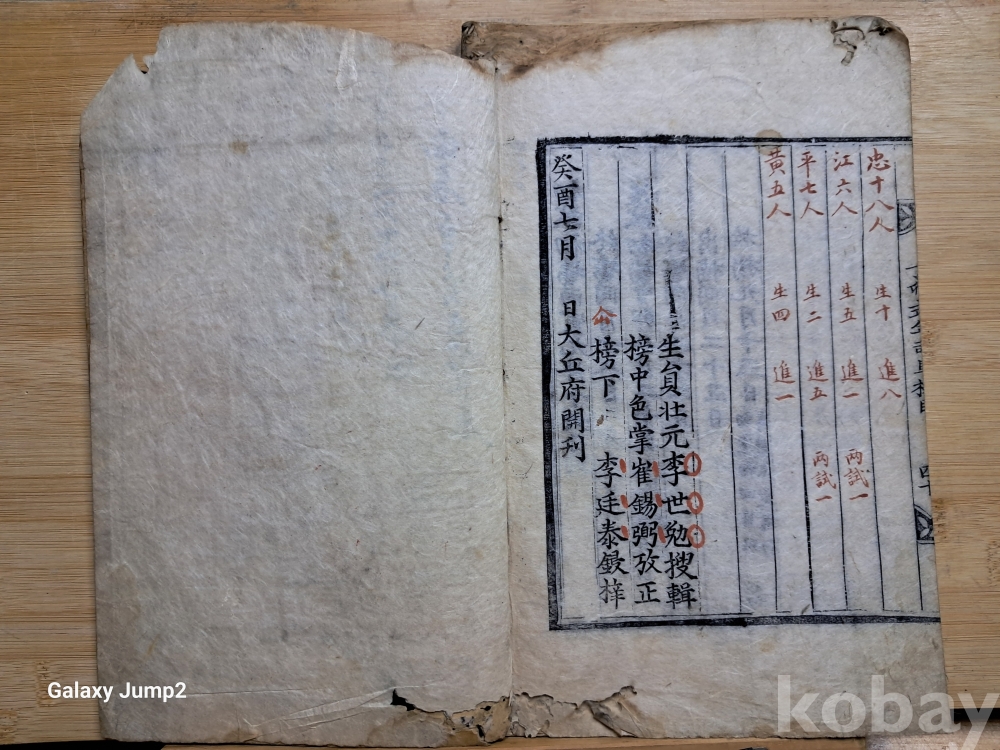 忠十八人 生十 進八
江六人 生五 進一 兩試一
平七人 生二 進五 兩試一
黃五人 生四 進一
生員壯元李世勉搜輯
榜中色掌崔錫弼攷正
榜下 李廷泰鋟梓
癸酉七月 日大丘府開刊
Galaxy Jump2
kobay